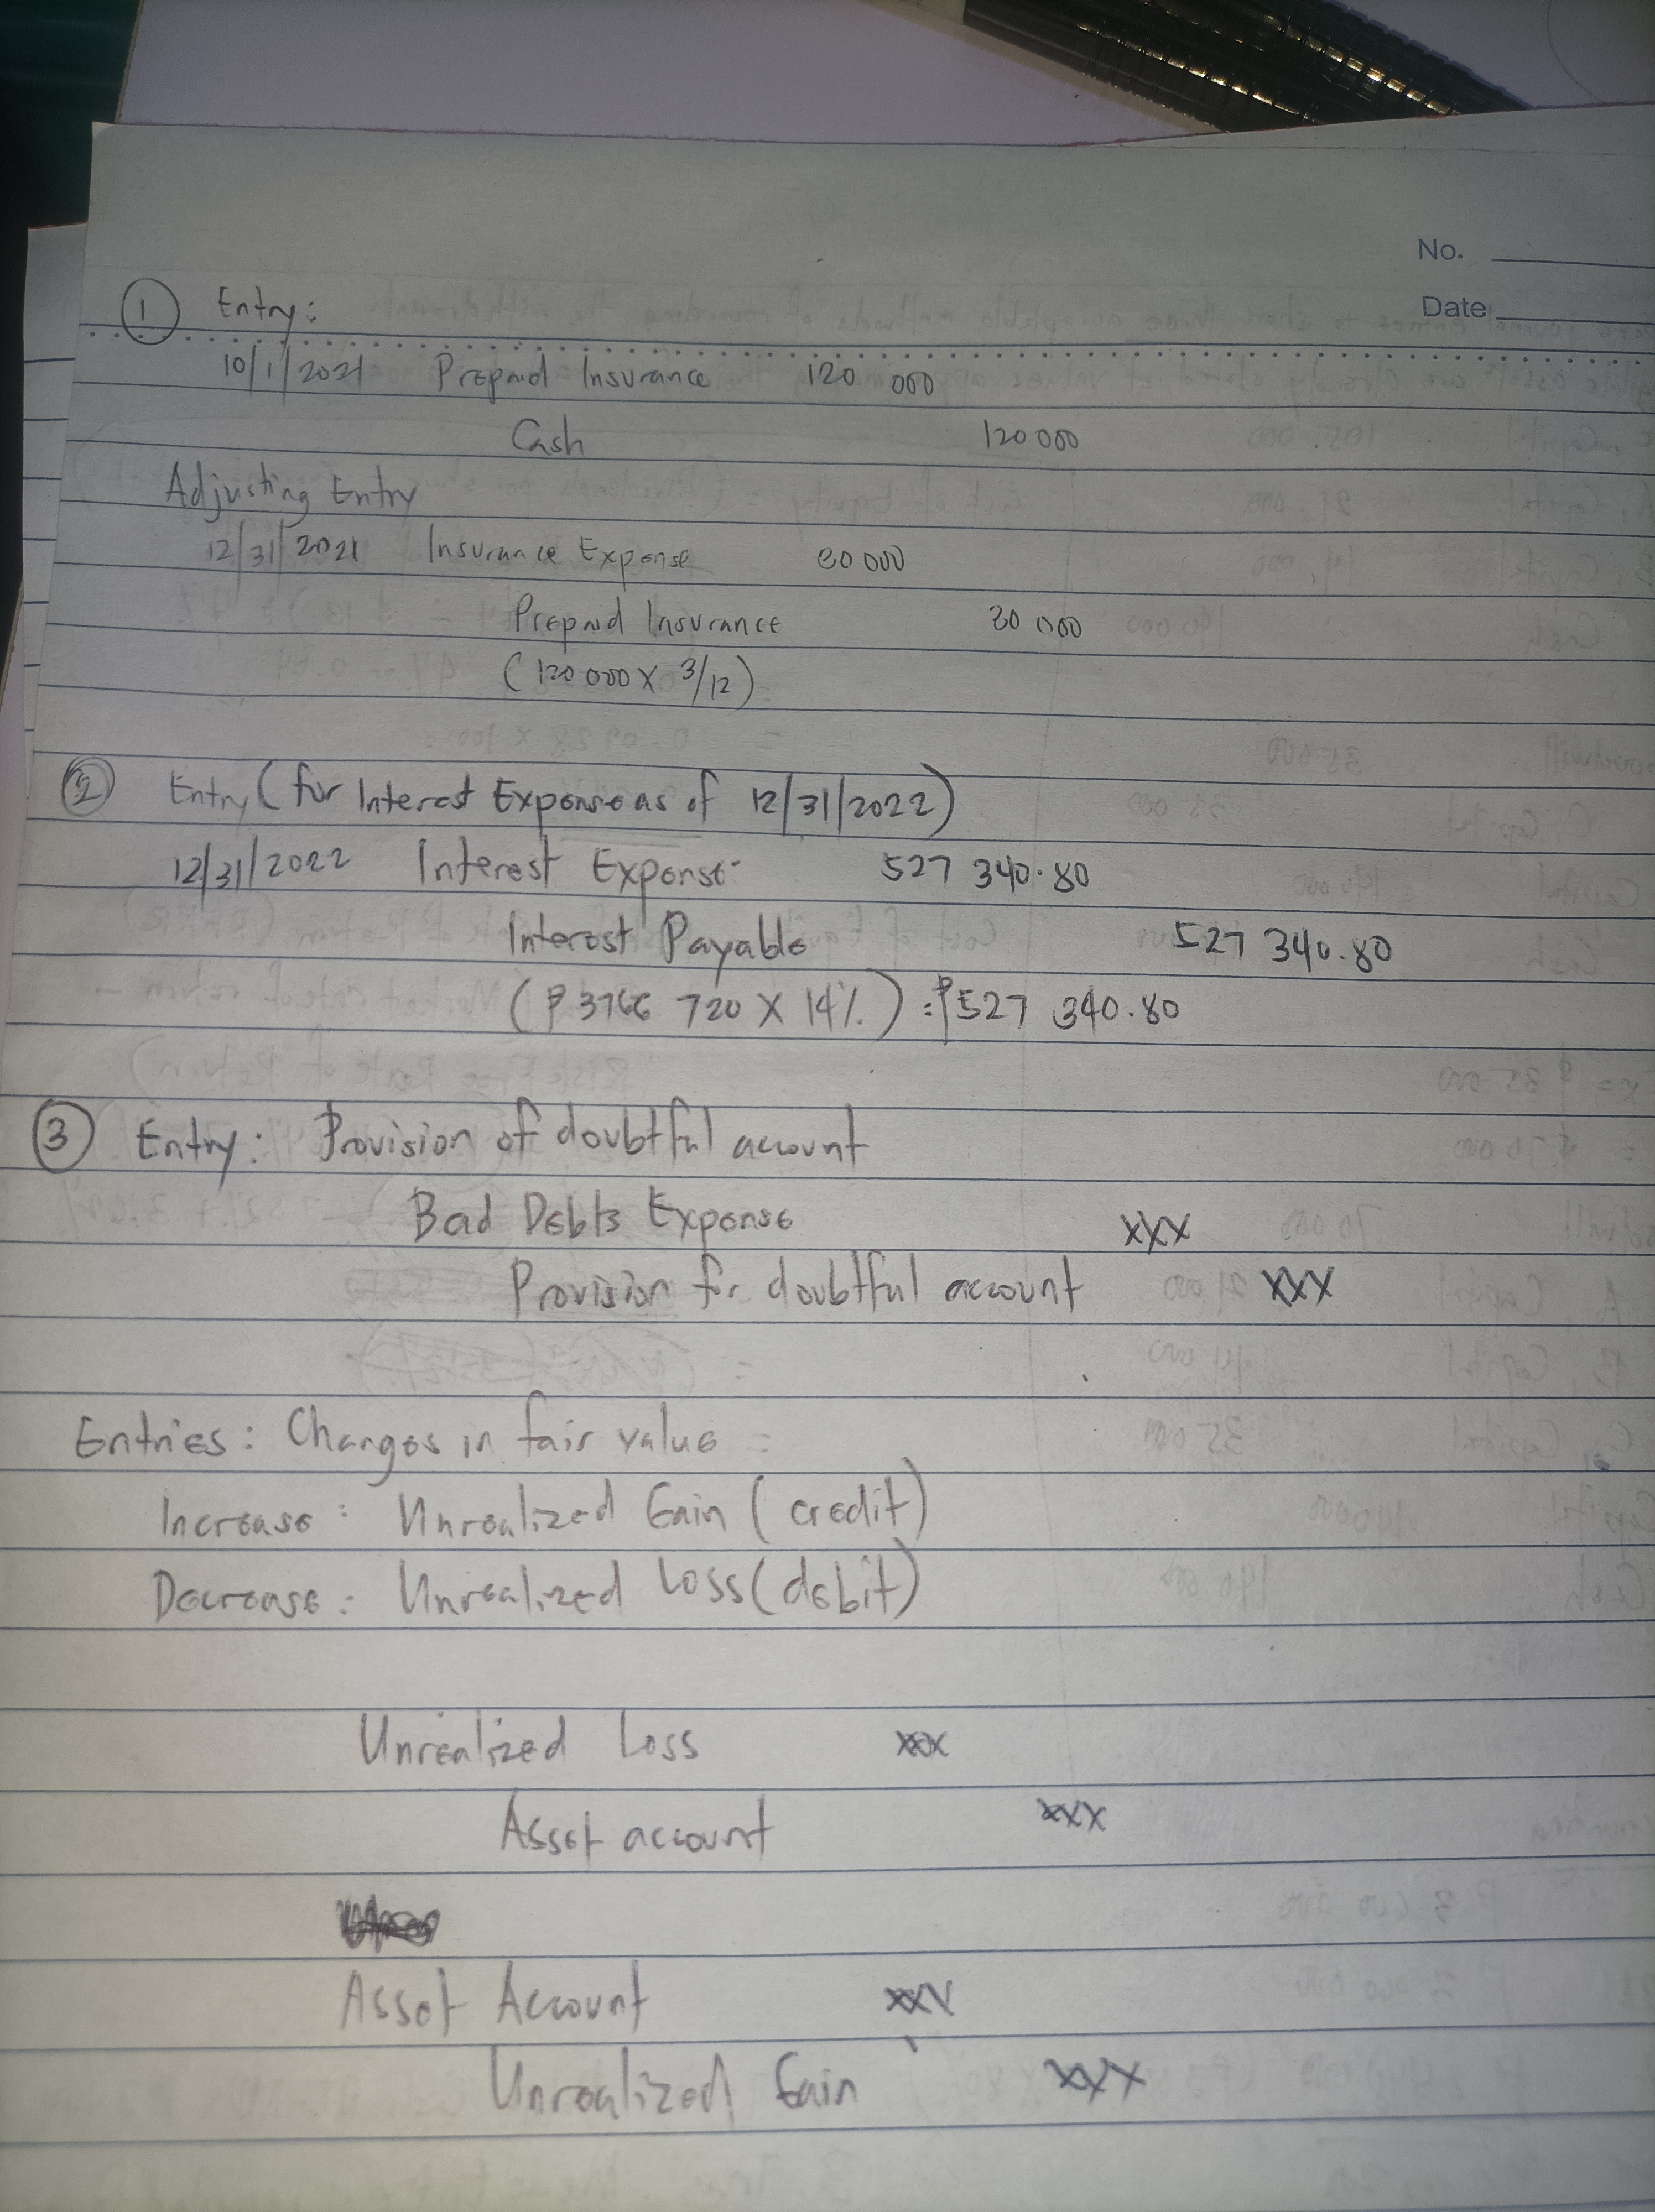 No.
Date
1 Entry:
10/1/2021 Prepaid Insurance 120 000
Cash 120 000
Adjusting Entry
12/31/2021 Insurance Expense 30 000
Prepaid Insurance 30 000
(120 000 X 3/12)
2 Entry (for Interest Expense as of 12/31/2022)
12/31/2022 Interest Expense 527 340.80
Interest Payable 527 340.80
(₱3766 720 X 14%) = ₱527 340.80
3 Entry: Provision of doubtful account
Bad Debts Expense xxx
Provision for doubtful account xxx
Entries: Changes in fair value =
Increase: Unrealized Gain (credit)
Decrease: Unrealized Loss (debit)
Unrealized Loss xxx
Asset account xxx
Asset Account xxx
Unrealized Gain xxx